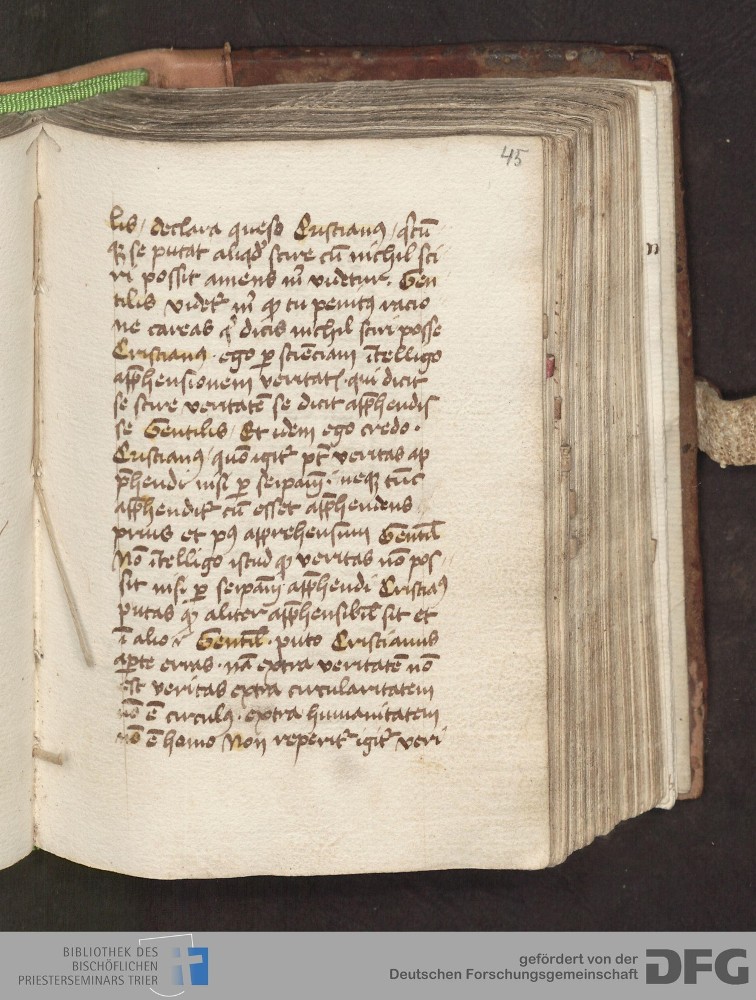 45
lis / declara queso Cristianꝰ / q̄cūꝗꝫ
se putat aliqd̕ scire cū nichil sci
ri possit amens m̄ videtur. Gen
tilis videt᷑ m̄ ꝙ tu penitꝰ racio
ne careas q̇ dicis nichil sciri posse
Cristianꝰ. ego ꝑ scienciam ītelligo
app̄hensionem veritatꝭ. qui dicit
se scire veritatē se dicit app̄hendis
se Gentilis / Et idem ego credo.
Cristianꝰ / quō igit᷑ pt̄ veritas ap
p̄hendi nisi ꝑ seipam̄. neqꝫ tūc
app̄hendit᷑ cū esset app̄hendens
prius et pꝰ apprehensum Gentil̄
Nō ītelligo istud ꝙ veritas nō pos
sit nisi ꝑ seipam̄ app̄hendi Cristiaꝰ
putas ꝙ aliter app̄hensibil̄ sit et
ī alio Gentil̄. puto Cristianus
aꝑte erras. nā extra veritatē nō
est veritas extra circularitatem
nō ē circulꝰ. extra humanitatem
nō ē homo Non reperit᷑ igit᷑ veri
BIBLIOTHEK DES
BISCHÖFLICHEN
PRIESTERSEMINARS TRIER
gefördert von der
Deutschen Forschungsgemeinschaft
DFG